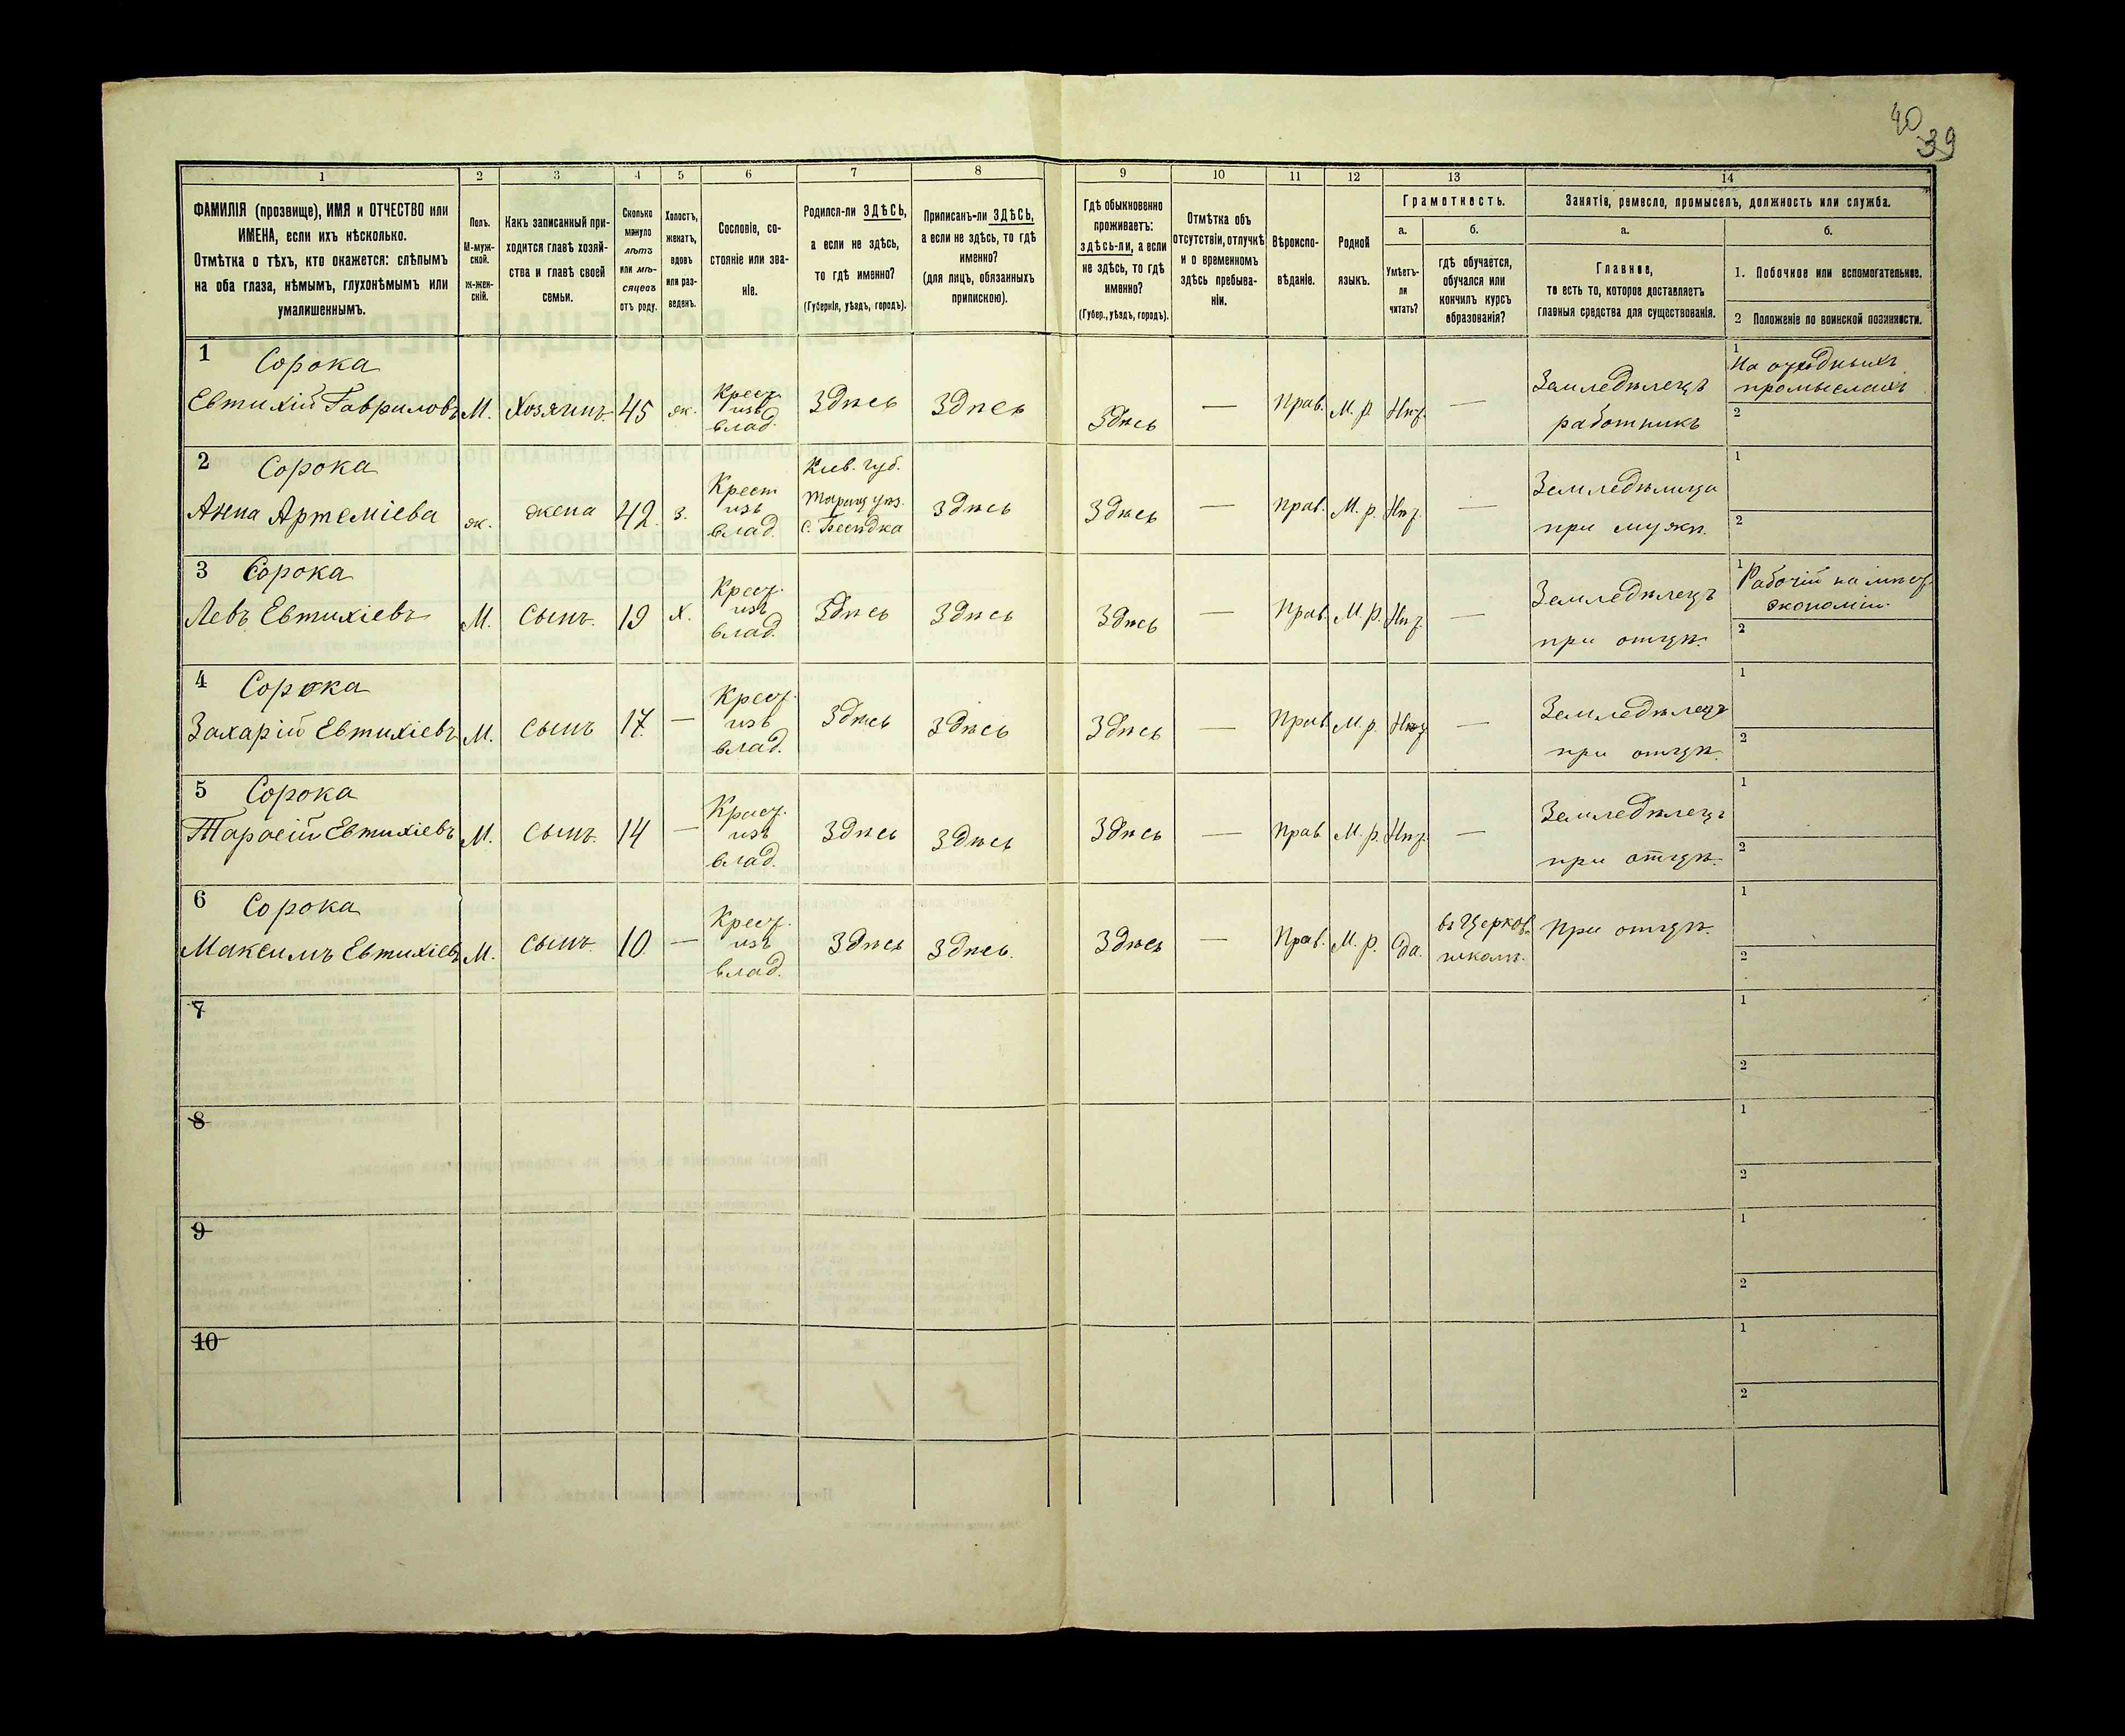 40
39
1
2
3
4
5
6
7
8
9
10
11
12
13
14
ФАМИЛІЯ (прозвище), ИМЯ и ОТЧЕСТВО или
ИМЕНА, если ихъ нѣсколько.
Отмѣтка о тѣхъ, кто окажется: слѣпымъ
на оба глаза, нѣмымъ, глухонѣмымъ или
умалишеннымъ.
Полъ.
М-муж-
ской.
Ж-жен-
скій.
Какъ записанный при-
ходится главѣ хозяй-
ства и главѣ своей
семьи.
Сколько
минуло
лѣтъ
или мѣ-
сяцевъ
отъ роду.
Холостъ,
женатъ,
вдовъ
или раз-
веденъ.
Сословіе, со-
стояніе или зва-
ніе.
Родился-ли ЗДѢСЬ,
а если не здѣсь,
то гдѣ именно?
(Губернія, уѣздъ, городъ).
Приписанъ-ли ЗДѢСЬ,
а если не здѣсь, то гдѣ
именно?
(для лицъ, обязанныхъ
припискою).
Гдѣ обыкновенно
проживаетъ:
здѣсь-ли, а если
не здѣсь, то гдѣ
именно?
(Губер., уѣздъ, городъ).
Отмѣтка объ
отсутствіи, отлучкѣ
и о временномъ
здѣсь пребыва-
ніи.
Вѣроиспо-
вѣданіе.
Родной
языкъ.
Грамотность.
а.
Умѣетъ-
ли
читать?
б.
гдѣ обучается,
обучался или
кончилъ курсъ
образованія?
Занятіе, ремесло, промыселъ, должность или служба.
а.
Главное,
то есть то, которое доставляетъ
главныя средства для существованія.
б.
1. Побочное или вспомогательное.
2 Положеніе по воинской повинности.
1 Сорока
Евтихій Гавриловъ М. Хозяинъ 45 ж. Крест. изъ влад. Здѣсь Здѣсь Здѣсь — Прав. М. р. Нѣт. — Земледѣлецъ работникъ
1 На отходныхъ промыслахъ
2
2 Сорока
Анна Артеміева ж. жена 42. з. Крест изъ влад. Кіев. губ. Таращ уѣз. с. Бесѣдка Здѣсь Здѣсь — Прав. М. р. Нѣт. — Земледѣлица при мужѣ.
1
2
3 Сорока
Левъ Евтихіевъ М. Сынъ. 19 х. Крест. изъ влад. Здѣсь Здѣсь Здѣсь — Прав. М. р. Нѣт. — Земледѣлецъ при отцѣ.
1 Рабочій на экономіи.
2
4 Сорока
Захарій Евтихіевъ М. сынъ 17. — Крест. изъ влад. Здѣсь Здѣсь Здѣсь — Прав. М. р. Нѣт — Земледѣлецъ при отцѣ.
1
2
5 Сорока
Тарасій Евтихіевъ М. сынъ. 14 — Крест. изъ влад. Здѣсь Здѣсь Здѣсь — Прав М. р. Нѣт. — Земледѣлецъ при отцѣ.
1
2
6 Сорока
Максимъ Евтихіевъ М. сынъ 10. — Крест. изъ влад. Здѣсь Здѣсь. Здѣсь — Прав. М. р. Да. въ Церков. школѣ. При отцѣ.
1
2
7
1
2
8
1
2
9
1
2
10
1
2